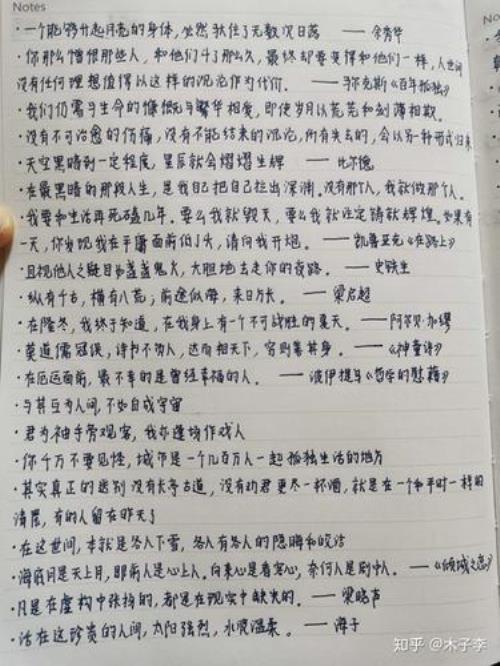 Notes
·一个能够升起月亮的身体，必然驮住了无数次日落 —— 余秀华
·你那么憎恨那些人，和他们斗了那么久，最终却要变得和他们一样，人世间
没有任何理想值得以这样的沉沦作为代价。——马尔克斯《百年孤独》
·我们仍需与生命的慷慨与繁华相爱，即使岁月以荒芜和刻薄相欺。
·没有不可治愈的伤痛，没有不能结束的沉沦，所有失去的，会以另一种形式归来
·天空黑暗到一定程度，星辰就会熠熠生辉 —— 比尔德
·在最黑暗的那段人生，是我自己把自己拉出深渊。没有那个人，我就做那个人。
·我要和生活再死磕几年。要么我就毁灭，要么我就注定铸就辉煌。如果有
一天，你发现我在平庸面前低了头，请向我开炮。——凯鲁亚克《在路上》
·且视他人之疑目如盏盏鬼火，大胆地去走你的夜路。——史铁生
·纵有千古，横有八荒；前途似海，来日方长。——梁启超
·在隆冬，我终于知道，在我身上有一个不可战胜的夏天。——阿尔贝·加缪
·莫道儒冠误，诗书不负人，达而相天下，穷则善其身。——《神童诗》
·在厄运面前，最不幸的是曾经幸福的人。——波伊提乌《哲学的慰藉》
·与其互为人间，不如自成宇宙
·君为袖手旁观客，我亦逢场作戏人
·你千万不要见怪，城市是一个几百万人一起孤独生活的地方
·其实真正的送别没有长亭古道，没有劝君更尽一杯酒，就是在一个和平时一样的
清晨，有的人留在昨天了
·在这世间，本就是各人下雪，各人有各人的隐晦和皎洁
·海底月是天上月，眼前人是心上人。向来心是看客心，奈何人是剧中人。——《倾城之恋》
·凡是在虚构中张扬的，都是在现实中缺失的。——梁晓声
·活在这珍贵的人间，太阳强烈，水波温柔。——海子
知乎 @木子李